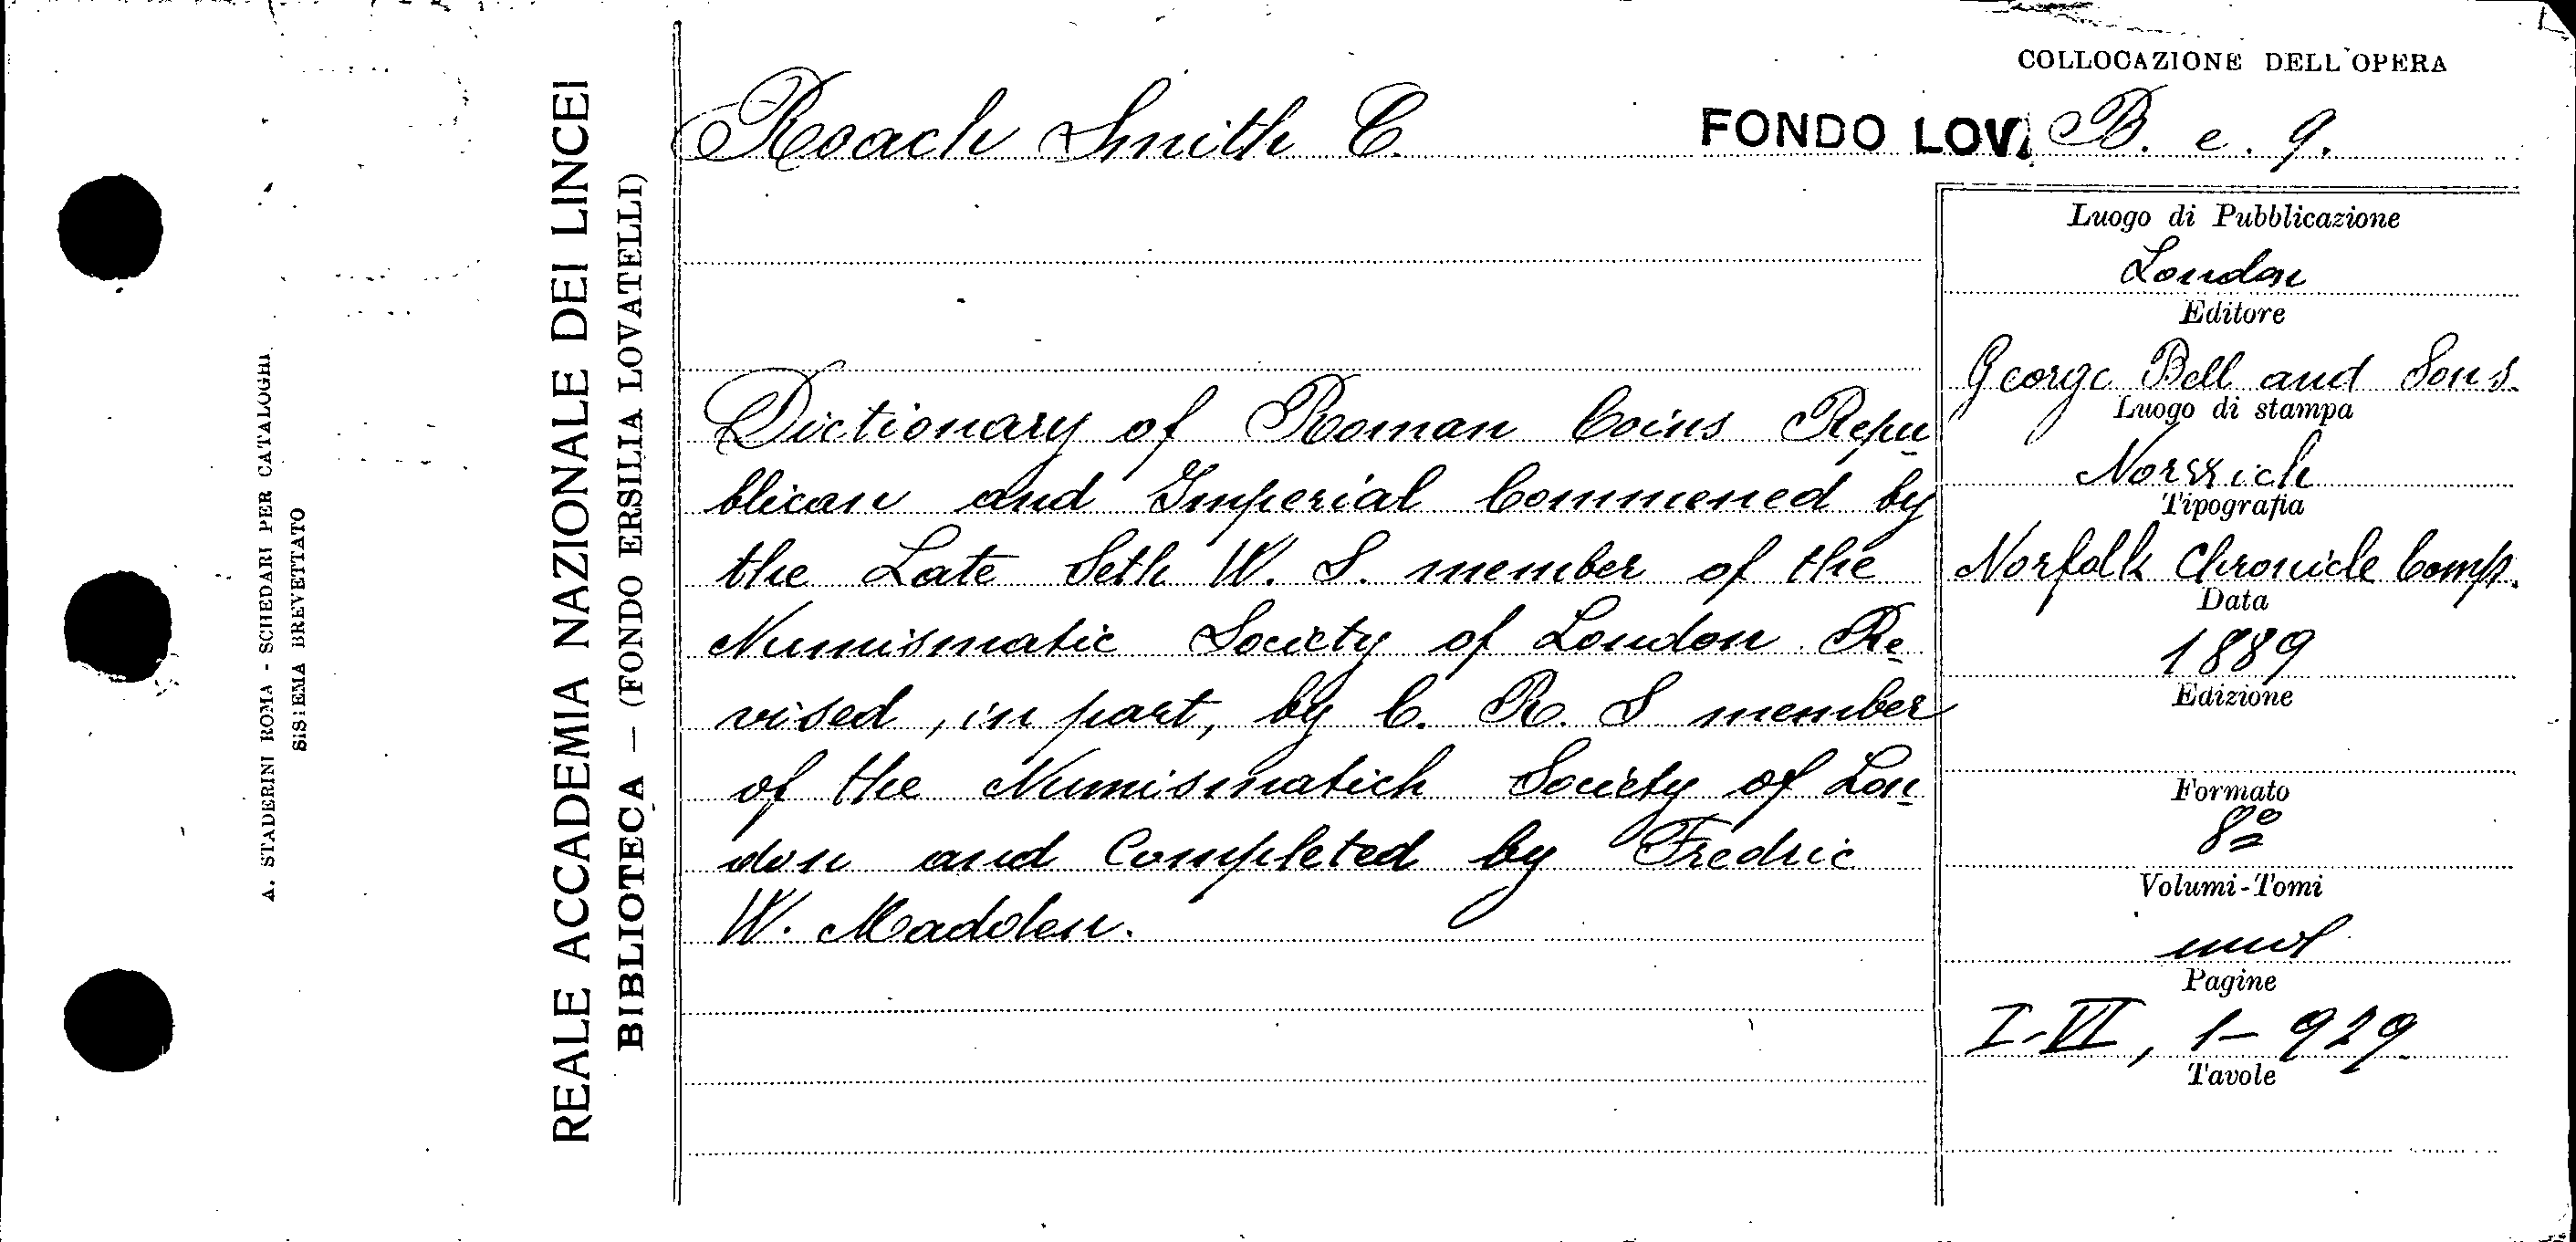 A. STADERINI ROMA - SCHEDARI PER CATALOGHI
SISTEMA BREVETTATO
REALE ACCADEMIA NAZIONALE DEI LINCEI
BIBLIOTECA — (FONDO ERSILIA LOVATELLI)
COLLOCAZIONE DELL'OPERA
Roach Smith C. FONDO LOV. B. e. 9.
Dictionary of Roman Coins Repu-
blican and Imperial Commened by
the Late Seth W. S. member of the
Numismatic Society of London Re-
vised, in part, by C. R. S member
of the Numismatich Society of Lon-
don and Completed by Fredric
W. Madden.
Luogo di Pubblicazione
London
Editore
George Bell and Sons.
Luogo di stampa
Norwich
Tipografia
Norfolk Chronicle Comp.
Data
1889
Edizione
Formato
8º
Volumi-Tomi
Pagine
I-VI, 1-929
Tavole